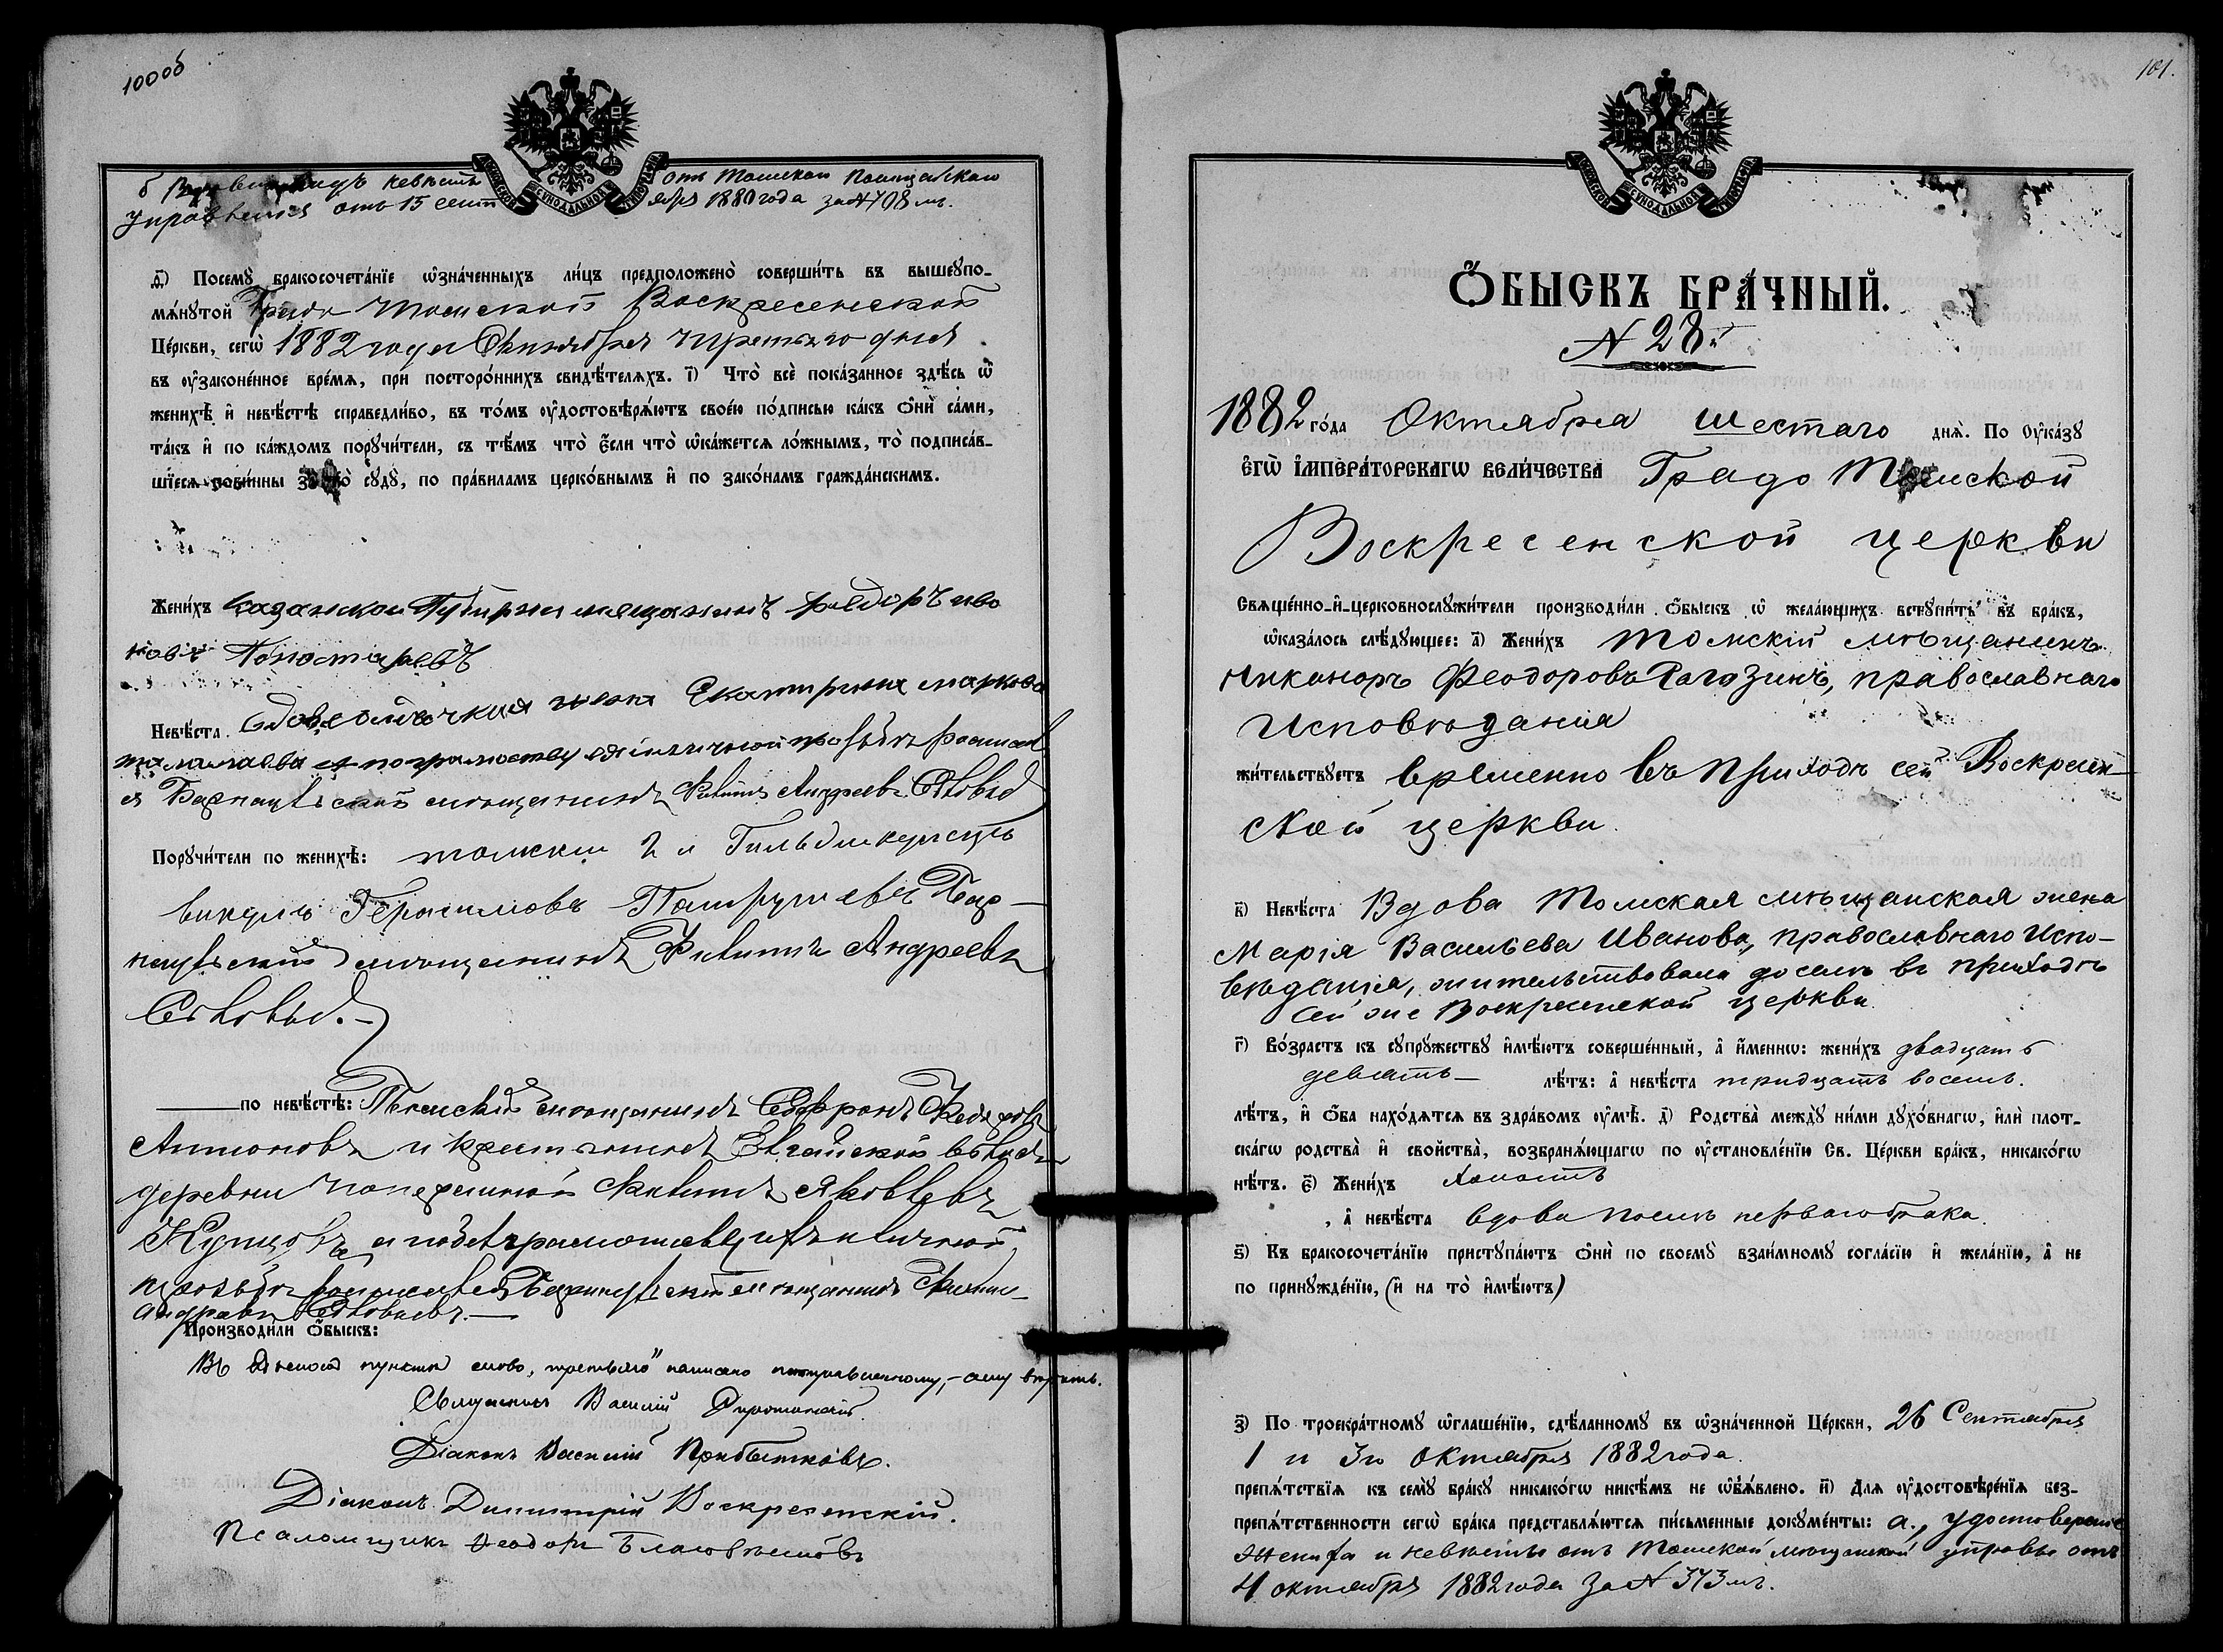 100об
б вдовій видъ невѣсты отъ Томскаго Полицейскаго
управленія отъ 15 сентября 1880 года за № 708 мъ.
ѳ҃) Посемꙋ бракосочета́нїе ѡ҆зна́ченныхъ ли́цъ предположено̀ соверши́ть въ вышеꙋпо-
мѧ́нꙋтой Градо Томской Воскресенской
Це́ркви, сегѡ̀ 1882 года Октября третьяго дня
въ ᲂу҆законе́нное вре́мѧ, при посторо́ннихъ свидѣ́телѧхъ. і҃) Что̀ всѐ пока́занное здѣ́сь ѡ҆
женихѣ̀ и҆ невѣ́стѣ справедли́во, въ то́мъ ᲂу҆достовѣрѧ́ютъ свое́ю по́дписью ка́къ ѻ҆нѝ са́ми,
та́къ и҆ по ка́ждомъ порꙋчи́тели, съ тѣ́мъ что̀ є҆́сли что̀ ѡ҆ка́жетсѧ ло́жнымъ, то̀ подписа́в-
шїесѧ пови́нны за то̀ сꙋдꙋ̀, по пра́виламъ церко́внымъ и҆ по зако́намъ гражда́нскимъ.
Жени́хъ Казанской Губернии мещанинъ Федоръ ива
новъ
Невѣ́ста Екатирина маркова
Барнаульскій мѣщанинъ Филипъ Андреевъ
Порꙋчи́тели по женихѣ̀: томский 2 й Гильдии купецъ
викулъ Герасимовъ Пастушевъ Бар-
наульский мѣщанинъ Филипъ Андреевъ
по невѣ́стѣ: мѣщанинъ Софронъ Федоровъ
Антоновъ и крестьянинъ
деревни Филипъ Яковлевъ
Купцовъ, а
просьбѣ росписался Барнаульскій мѣщанинъ Филипъ
Андреевъ
Производи́ли ѻ҆́быскъ:
Въ пунктѣ слово „третьяго" написано поправленному, – ему вѣрить.
Священникъ Василій
Діаконъ Василій Прибытковъ.
Діаконъ Димитрій Воскресенскій.
Псаломщикъ Ѳеодоръ
101.
Ѻ҆́БЫСКЪ БРА́ЧНЫЙ.
№ 28й
1882 го́да Октября шестаго днѧ̀. По ᲂу҆ка́зꙋ
є҆гѡ̀ і҆мпера́торскагѡ вели́чества Градо Томской
Воскресенской церкви
Свѧще́нно-и҆-церковнослꙋжи́тели производи́ли ѻ҆́быскъ ѡ҆ жела́ющихъ встꙋпи́ть въ бра́къ,
ѡ҆каза́лось слѣ́дꙋющее: а҃) Жени́хъ томскій мѣщанинъ
Никаноръ Феодоровъ Рагозинъ, православнаго
исповѣданія
жи́тельствꙋетъ временно въ приходѣ сей Воскресен-
ской церкви.
в҃) Невѣ́ста Вдова Томская мѣщанская жена
Марія Васильева Иванова, православнаго испо-
вѣданія, жительствовала доселѣ въ приходѣ
сей же Воскресенской церкви.
г҃) Во́зрастъ къ сꙋпрꙋ́жествꙋ и҆мѣ́ютъ соверше́нный, а҆ и҆́меннѡ: жени́хъ двадцать
девять – лѣ́тъ: а҆ невѣ́ста тридцать восемь.
лѣ́тъ, и҆ ѻ҆́ба нахо́дѧтсѧ въ здра́вомъ ᲂу҆мѣ̀. д҃) Родства̀ междꙋ̀ ни́ми дꙋхо́внагѡ, и҆лѝ плот-
ска́гѡ родства̀ и҆ свойства̀, возбранѧ́ющагѡ по ᲂу҆становле́нїю Св. Це́ркви бра́къ, никако́гѡ
нѣ́тъ. є҃) Жени́хъ холостъ
, а҆ невѣ́ста вдова послѣ перваго брака.
ѕ҃) Къ бракосочета́нїю пристꙋпа́ютъ ѻ҆нѝ по своемꙋ̀ взаи́мномꙋ согла́сїю и҆ жела́нїю, а҆ не
по принꙋжде́нїю, (и҆ на то̀ и҆мѣ́ютъ)
з҃) По троекра́тномꙋ ѡ҆глаше́нїю, сдѣ́ланномꙋ въ ѡ҆зна́ченной Це́ркви, 26 Сентября
1 и 3го Октября 1882 года.
препѧ́тствїѧ къ семꙋ̀ бра́кꙋ никако́гѡ никѣ́мъ не ѡ҆б̾ѧ́влено. и҃) Длѧ ᲂу҆достовѣре́нїѧ без-
препѧ́тственности сегѡ̀ бра́ка представлѧ́ютсѧ пи́сьменные докꙋме́нты: а., удостовереніе
жениха и невѣсты отъ Томской мѣщанской управы отъ
4 октября 1882 года за № 373 мъ.